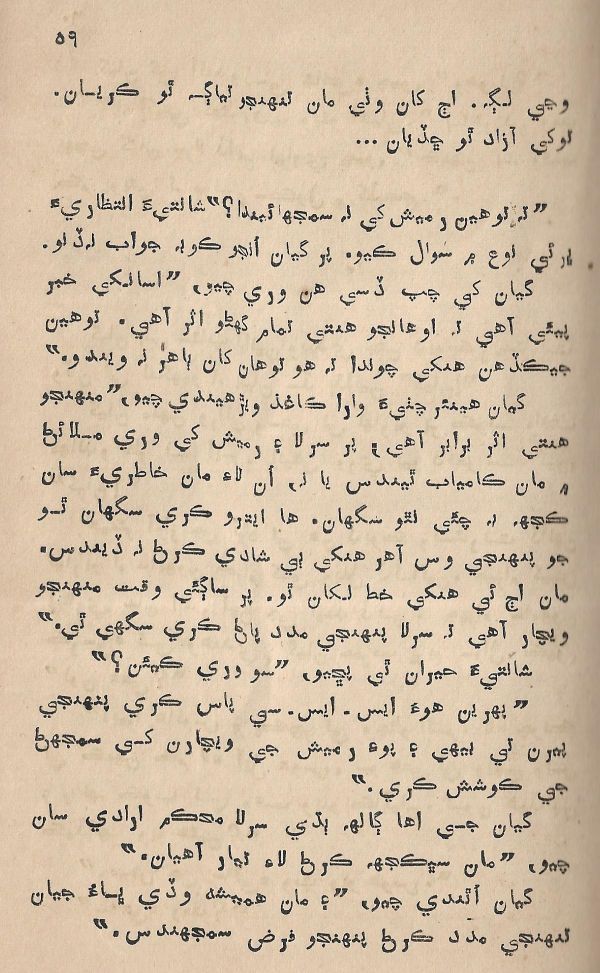 ٥٩
وڃي لڳه. اڄ کان وٺي مان تنهنجو تياڳ ٿو ڪريان.
توکي آزاد ٿو ڇڏيان ...
”ته توهين رميش کي نه سمجهائيندا؟“ شانتيءَ انتظاريءَ
ڀرئي نوع ۾ سوال ڪيو. پر گيان اُنجو ڪوبه جواب نه ڏنو.
گيان کي چپ ڏسي هن وري چيو، ”اسانکي خبر
پيئي آهي ته اوهانجو هنتي تمام گهڻو اثر آهي. توهين
جيڪڏهن هنکي چوندا ته هو توهان کان ٻاهر نه ويندو.“
گيان هينئر چٺيءَ وارا ڪاغذ ويڙهيندي چيو، ”منهنجو
هنتي اثر برابر آهي، پر سرلا ۽ رميش کي وري ملائڻ
۾ مان ڪامياب ٿيندس يا نه، اُن لاءِ مان خاطريءَ سان
ڪجهه نه چئي ٿو سگهان. ها ايترو ڪري سگهان ٿو
جو پنهنجي وس آهر هنکي ٻي شادي ڪرڻ نه ڏيندس.
مان اڄ ئي هنکي خط لکان ٿو. پر ساڳئي وقت منهنجو
ويچار آهي ته سرلا پنهنجي مدد پاڻ ڪري سگهي ٿي.“
شانتيءَ حيران ٿي پڇيو، ”سو وري ڪيئن؟“
”پهرين هوءَ ايس. ايس. سي پاس ڪري پنهنجي
پيرن تي بيهي ۽ پوءِ رميش جي ويچارن کي سمجهڻ
جي ڪوشش ڪري.“
گيان جي اها ڳالهه ٻڌي سرلا محڪم ارادي سان
چيو، ”مان سڀڪجهه ڪرڻ لاءِ تيار آهيان.“
گيان اُٿندي چيو، ”۽ مان هميشه وڏي ڀاءُ جيان
تنهنجي مدد ڪرڻ پنهنجو فرض سمجهندس.“